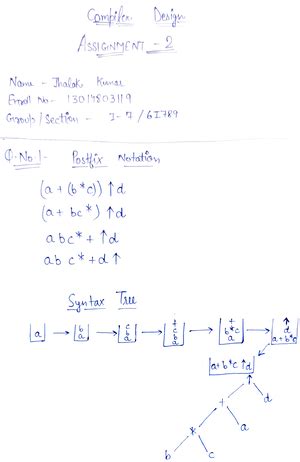 Compiler Design
ASSIGNMENT - 2
Name - Jhalak Kumar
Enroll No - 13014803119
Group/Section - I-7/6I789
Q-No.1- Postfix Notation
(a + (b*c)) ↑d
(a + bc*) ↑d
abc*+ ↑d
abc*+d↑
Syntax Tree
a → b a → c b a → * c b a → + b*c a → ↑ d a+b*c
a+b*c↑d
↑
+ d
* a
b c